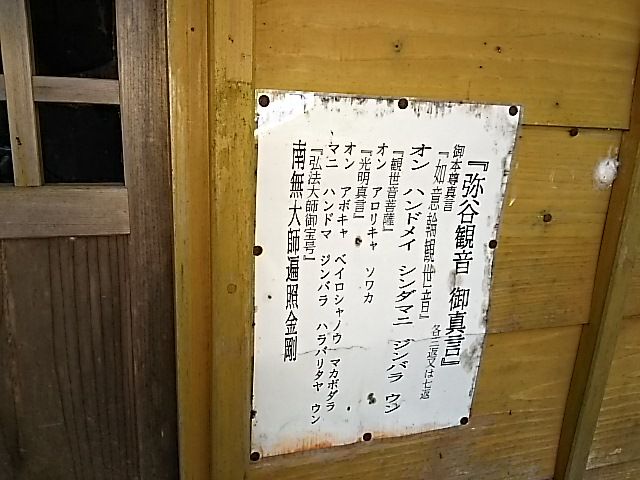 『弥谷観音 御真言』
御本尊真言 各三返又は七返
『如意輪観世音』
オン ハンドメイ シンダマニ ジンバラ ウン
『観世音菩薩』
オン アロリキャ ソワカ
『光明真言』
オン アボキャ ベイロシャノウ マカボダラ
マニ ハンドマ ジンバラ ハラバリタヤ ウン
『弘法大師御宝号』
南無大師遍照金剛